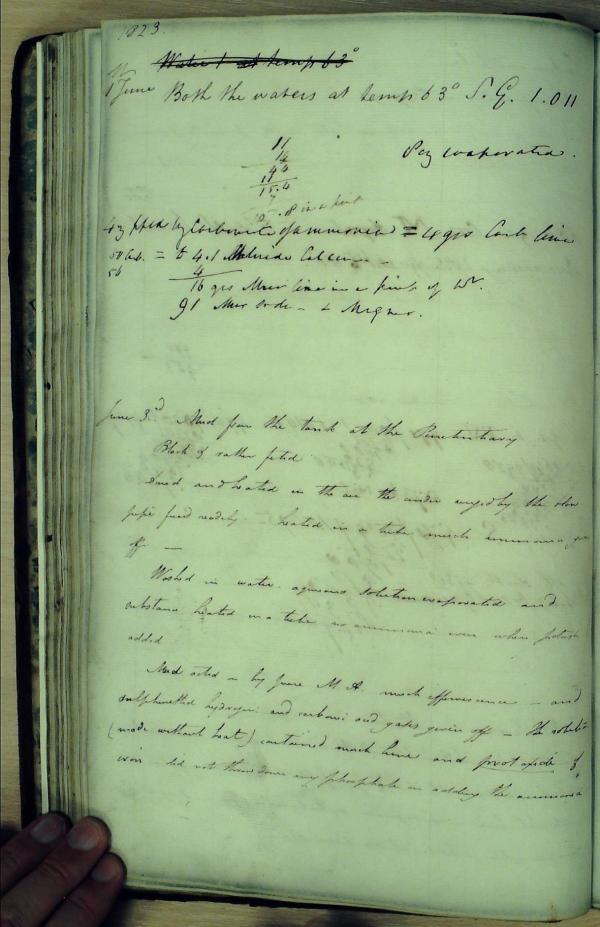 1823.
Water 1 at temp 63°
June Both the waters at temp 63° S. G. 1.011
11
14
44
11
15.4
8 oz evaporated.
.8 in a pint
4 oz pptd by Carbonate of ammonia = 4 grs Carb lime
= to 4.1 Calcium
4
16 grs Mur lime in a pint of Wr.
91 Mur Soda - & Magnes.
June 3rd Mud from the tank at the Penitentiary
Black & rather fetid
Dried and heated in the air the cinder urged by the blow
pipe fused readily - heated in a tube much ammonia
off -
Washed in water. aqueous solution evaporated and
substance heated in a tube no ammonia even when potash
added
Mud acted on by pure M. A. much effervescence - and
sulphuretted hydrogen and carbonic acid gases given off - the solution
(made without heat) contained much lime and protoxide of
iron did not throw down any phosphate on adding the ammonia